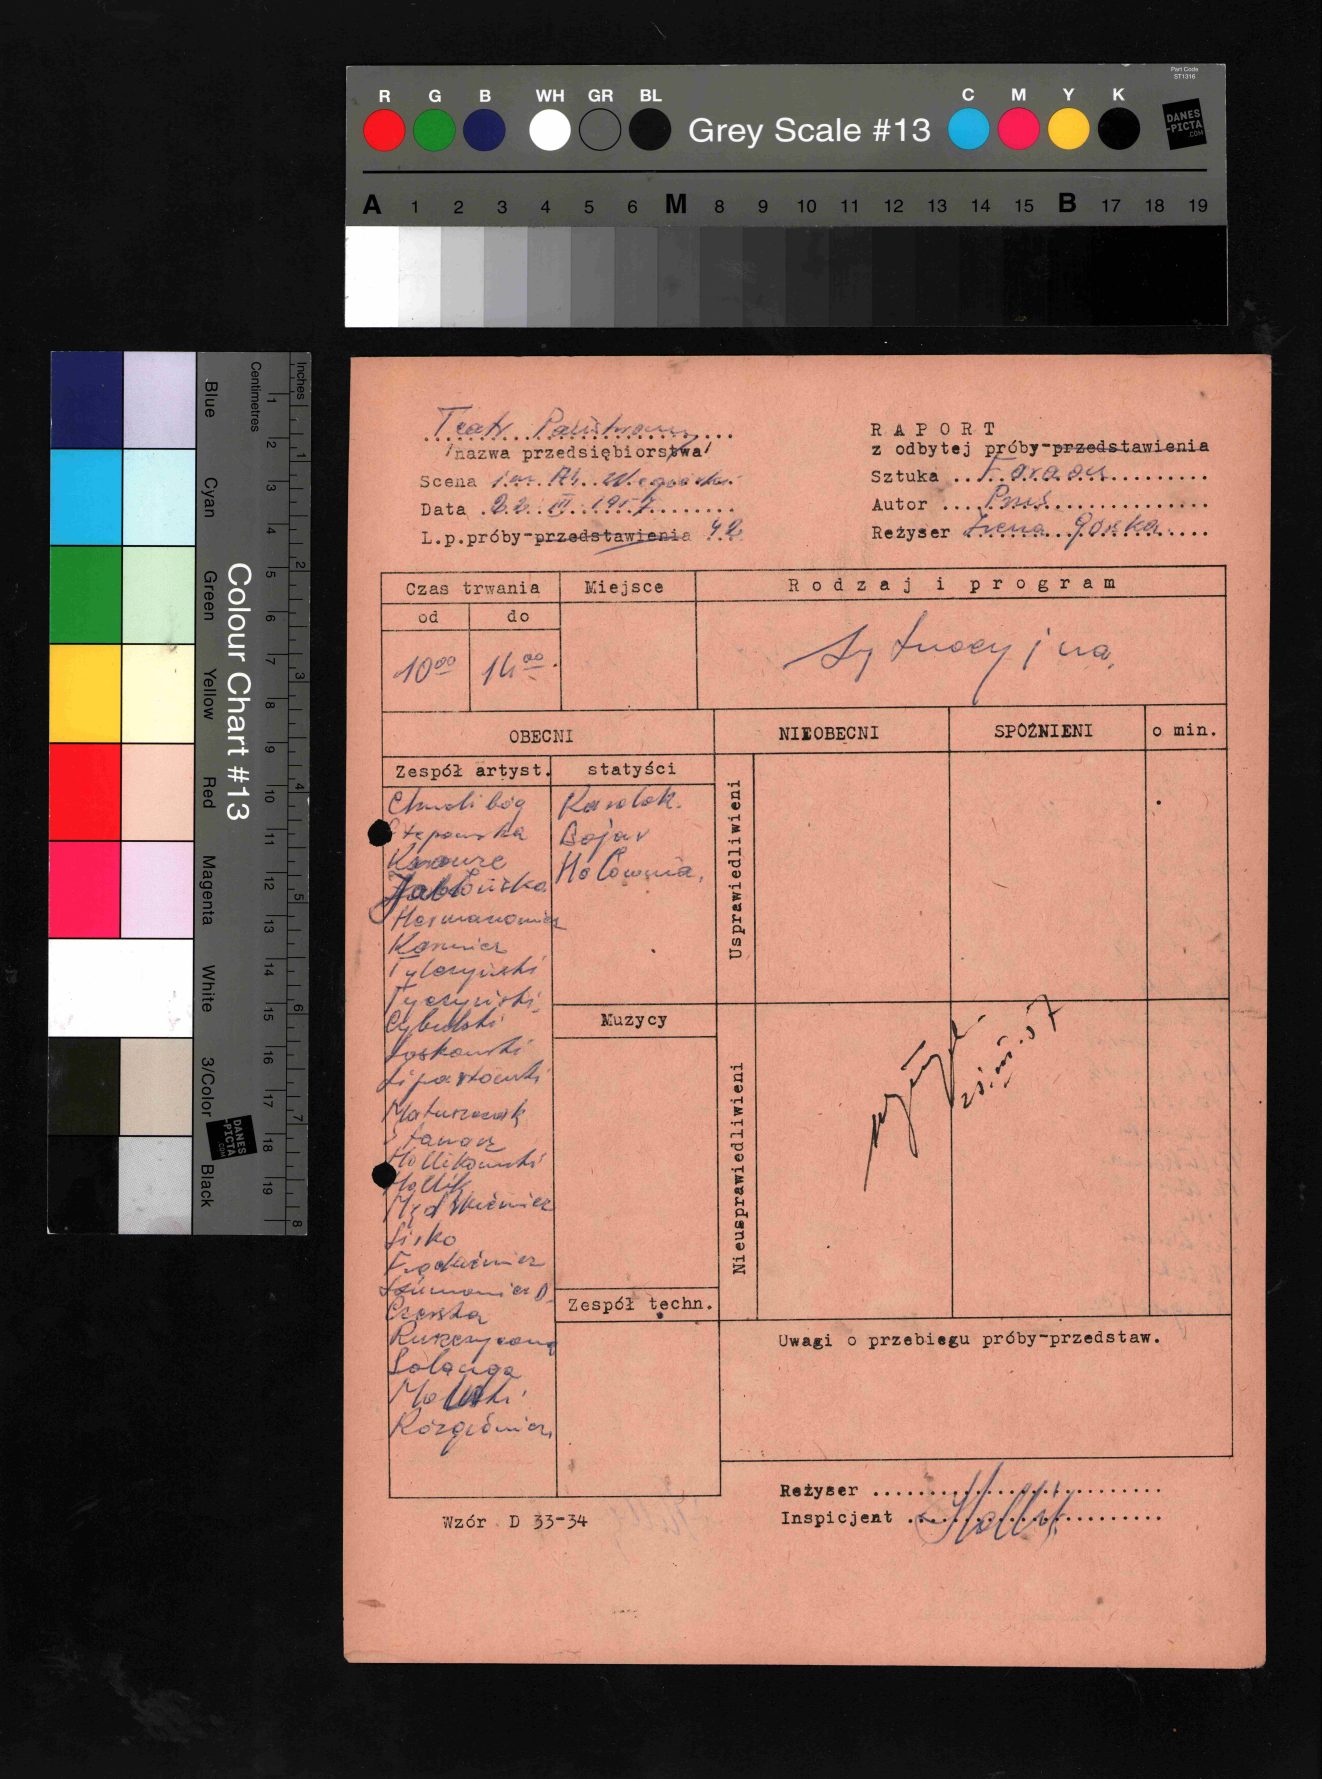 Part Code
ST1316
R G B WH GR BL
Grey Scale #13
C M Y K
DANES
-PICTA
.COM
A 1 2 3 4 5 6 M 8 9 10 11 12 13 14 15 B 17 18 19
Colour Chart #13
Blue
Cyan
Green
Yellow
Red
Magenta
White
3/Color
Black
Centimetres
1 2 3 4 5 6 7 8 9 10 11 12 13 14 15 16 17 18 19
Inches
1 2 3 4 5 6 7 8
DANES
-PICTA
.COM
Teatr Państwowy
/nazwa przedsiębiorstwa/
Scena im. Al. Węgierki
Data 22. III. 1957
L.p.próby-przedstawienia 42
RAPORT
z odbytej próby-przedstawienia
Sztuka Faraon
Autor Prus
Reżyser Irena Górska
Czas trwania
Miejsce
Rodzaj i program
od do
10⁰⁰ 14⁰⁰
Sytuacyjna,
OBECNI
NIEOBECNI
SPÓŹNIENI
o min.
Zespół artyst.
statyści
Chwalibóg
Stępowska
Jabłońska
Hermanowicz
Karwicz
Tylczyński
Tyczyński
Cybulski
Laskowski
Matuszczak
Hollik
Lisko
Czerska
Solanga
Malski
Karolak.
Bojar
Hołownia.
Usprawiedliwieni
Muzycy
Nieusprawiedliwieni
23.III.57
Zespół techn.
Uwagi o przebiegu próby-przedstaw.
Reżyser
Inspicjent Hollik
Wzór D 33-34